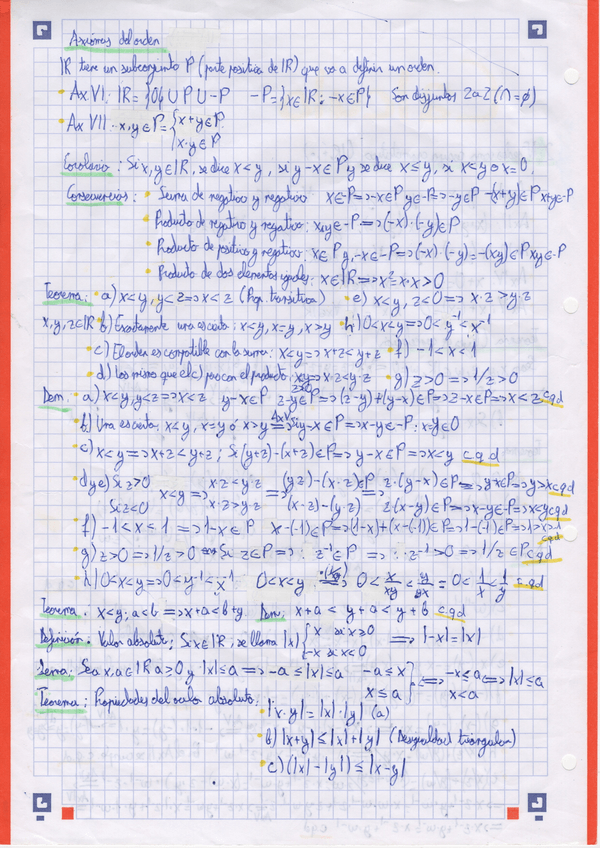 Axiomas del orden
IR tiene un subconjunto P (parte positiva de IR) que va a definir un orden.
Ax VI: IR = {0} ∪ P ∪ -P    -P = {x∈IR : -x∈P}    Son disjuntos 2 a 2 (∩ = ∅)
Ax VII: x,y∈P = { x+y∈P
x·y∈P
Corolario: Si x,y∈IR, se dice x<y, si y-x∈P y se dice x≤y, si x<y o x=0.
Consecuencias: Suma de negativo y negativo  x∈-P => -x∈P y∈-P => -y∈P  -(x+y)∈P x+y∈-P
Producto de negativo y negativo: x,y∈-P => (-x)·(-y)∈P
Producto de positivo y negativo: x∈P y, -x∈-P => (-x)·(-y) = -(xy)∈P xy∈-P
Producto de dos elementos iguales: x∈IR => x²=x·x>0
Teorema: a) x<y, y<z => x<z (Prop. transitiva)    e) x<y, z<0 => x·z>y·z
x,y,z∈IR b) Exactamente una es cierta: x<y, x=y, x>y    h) 0<x<y => 0<y⁻¹<x⁻¹
c) El orden es compatible con la suma: x<y => x+z<y+z    f) -1<x<1
d) Lo mismo que el c) pero con el producto: x<y => x·z<y·z    g) z>0 => 1/z>0
z>0
Dem: a) x<y, y<z => x<z   y-x∈P   z-y∈P => (z-y)+(y-x)∈P => z-x∈P => x<z cqd
b) Una es cierta: x<y, x=y ó x>y => Si y-x∈P => x-y∈-P : x=y∈0
c) x<y => x+z<y+z ; Si (y+z)-(x+z)∈P => y-x∈P => x<y c.q.d
d y e) Si z>0   x<y =>   x·z<y·z   (y·z)-(x·z)∈P   z·(y-x)∈P => y-x∈P => y>x cqd
Si z<0   x·z>y·z => (x·z)-(y·z) => z(x-y)∈P => x-y∈-P => x<y cqd
f) -1<x<1 => 1-x∈P   x-(-1)∈P => (1-x)+(x-(-1))∈P => 1-(-1)∈P => 1>x>-1 cqd
g) z>0 => 1/z>0   Si z∈P => : z⁻¹∈P => : z⁻¹>0 => 1/z∈P cqd
h) 0<x<y => 0<y⁻¹<x⁻¹   0<x<y => 0 < x/xy < y/yx = 0 < 1/x < 1/y cqd
Teorema: x<y; a<b => x+a<b+y   Dem: x+a < y+a < y+b c.q.d
Definición: Valor absoluto; Si x∈IR, se llama |x| { x si x≥0   => |-x|=|x|
-x si x<0
Lema: Sea x,a∈IR a>0 y |x|≤a => -a≤|x|≤a   -a≤x } => -x≤a => |x|≤a
x≤a   x<a
Teorema: Propiedades del valor absoluto:
|x·y|=|x|·|y| (a)
b) |x+y|≤|x|+|y| (Desigualdad triangular)
c) (|x|-|y|)≤|x-y|